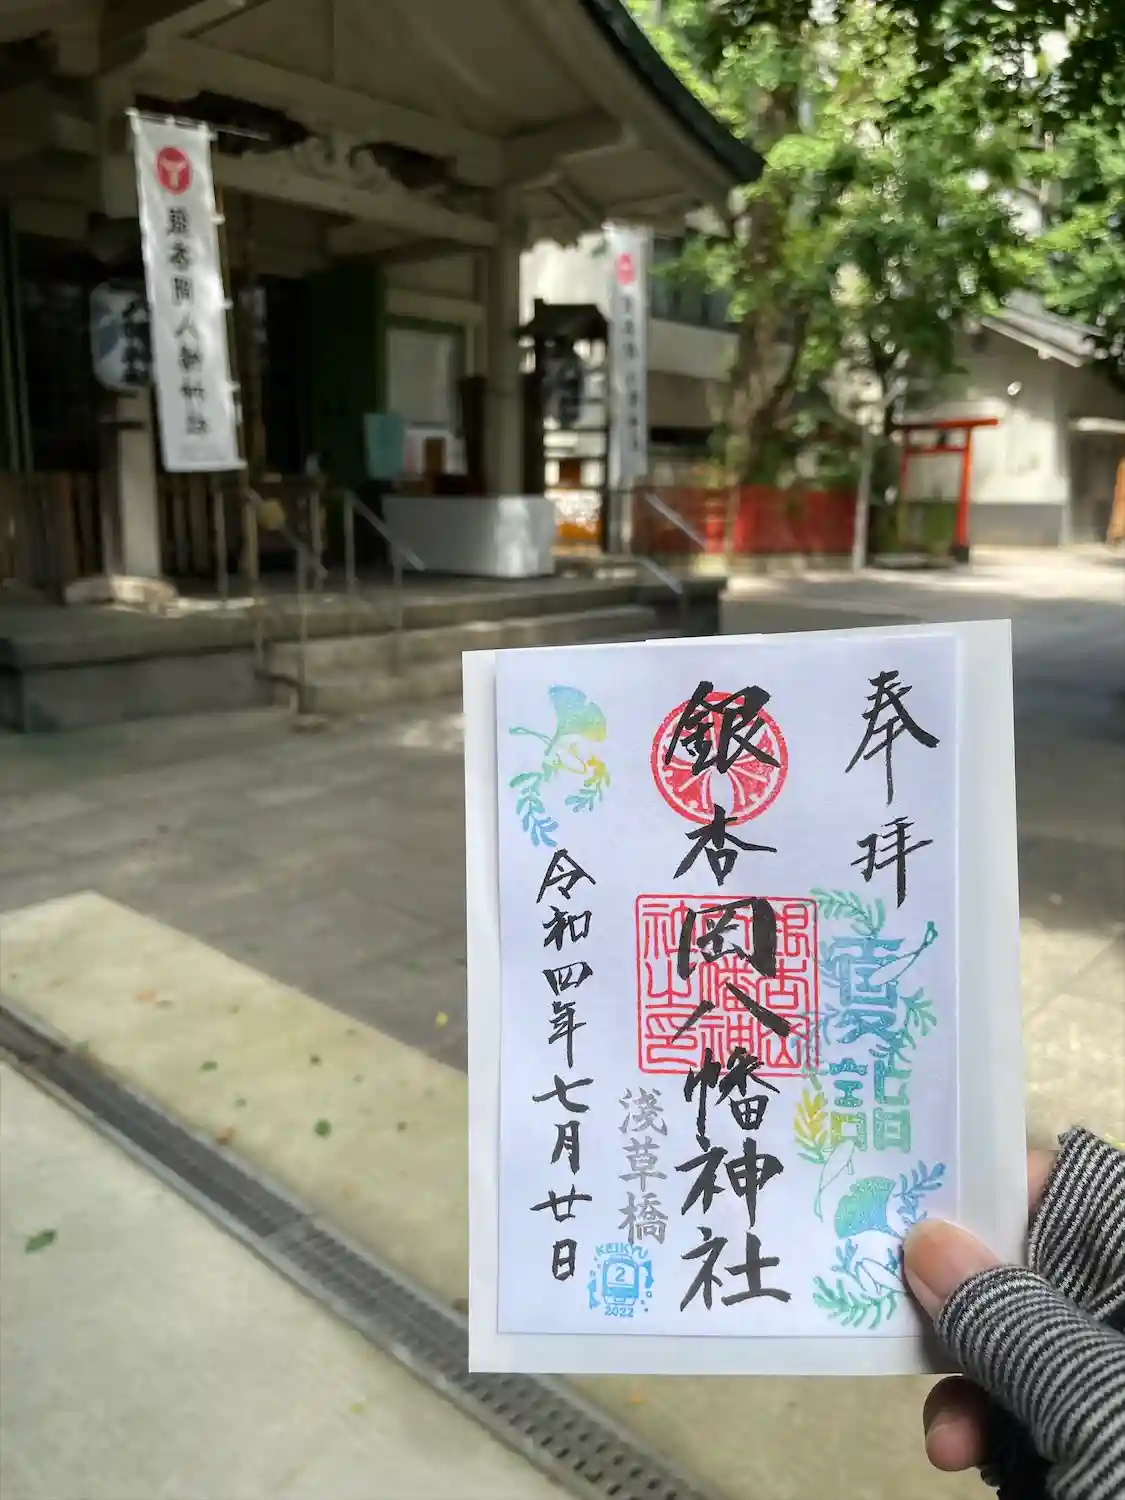 奉拝
夏詣
銀杏岡八幡神社
銀杏岡八幡神社之印
浅草橋
令和四年七月廿日
KEIKYU
2
2022
銀杏岡八幡神社